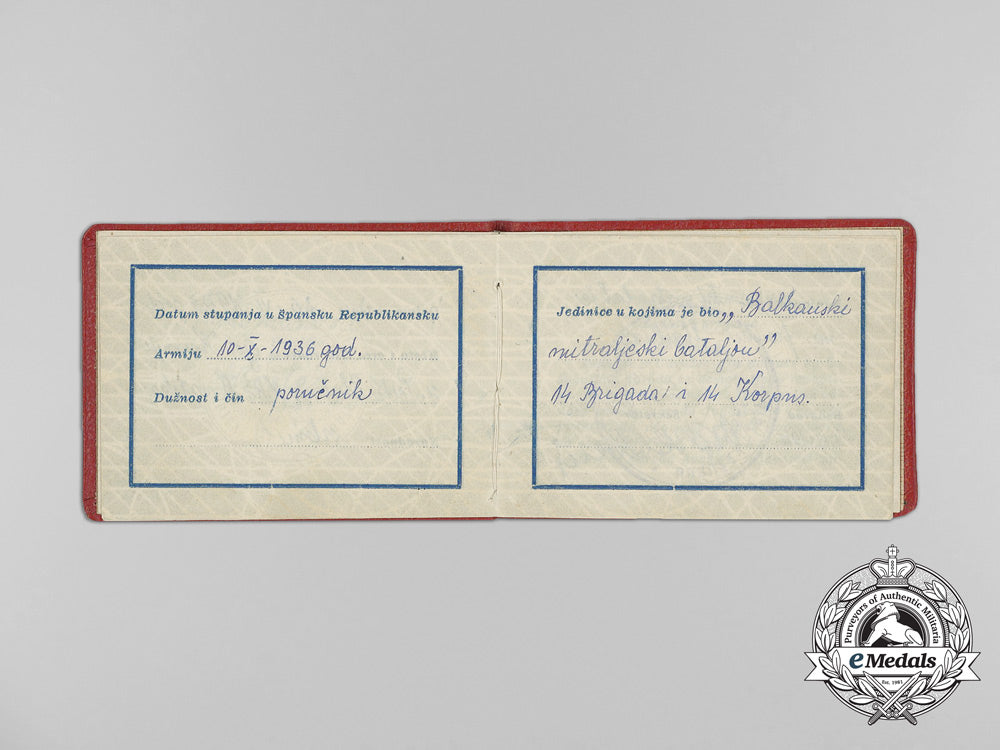 Datum stupanja u špansku Republikansku
Armiju 10-X-1936 god.
Dužnost i čin poručnik
Jedinice u kojima je bio „Balkanski
mitraljeski bataljon”
14 Brigada i 14 Korpus.
Purveyors of Authentic Militaria
eMedals
Est. 1981